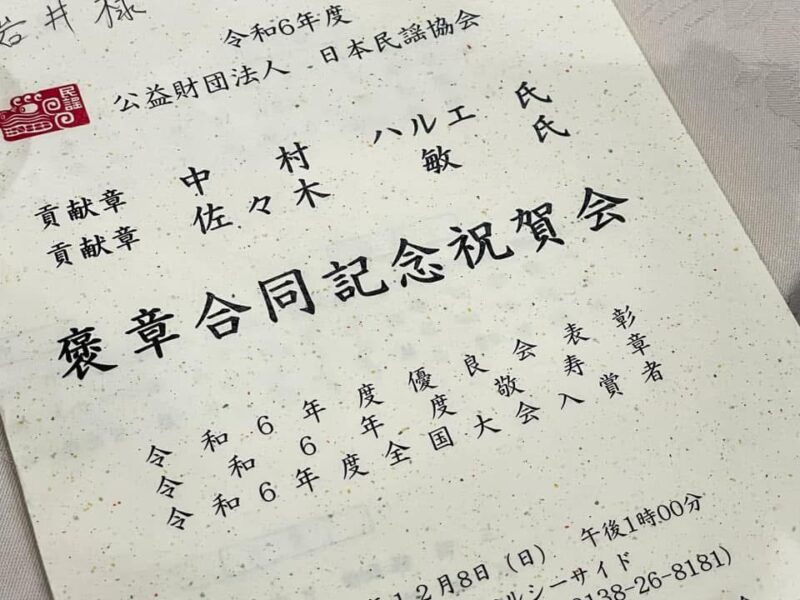 岩井様
令和6年度
公益財団法人 日本民謡協会
民謡
貢献章 中村 ハルエ 氏
貢献章 佐々木 敏 氏
褒章合同記念祝賀会
令和6年度優良会表彰
令和6年度敬寿章
令和6年度全国大会入賞者
12月8日(日) 午後1時00分
ルシーサイド
0138-26-8181)